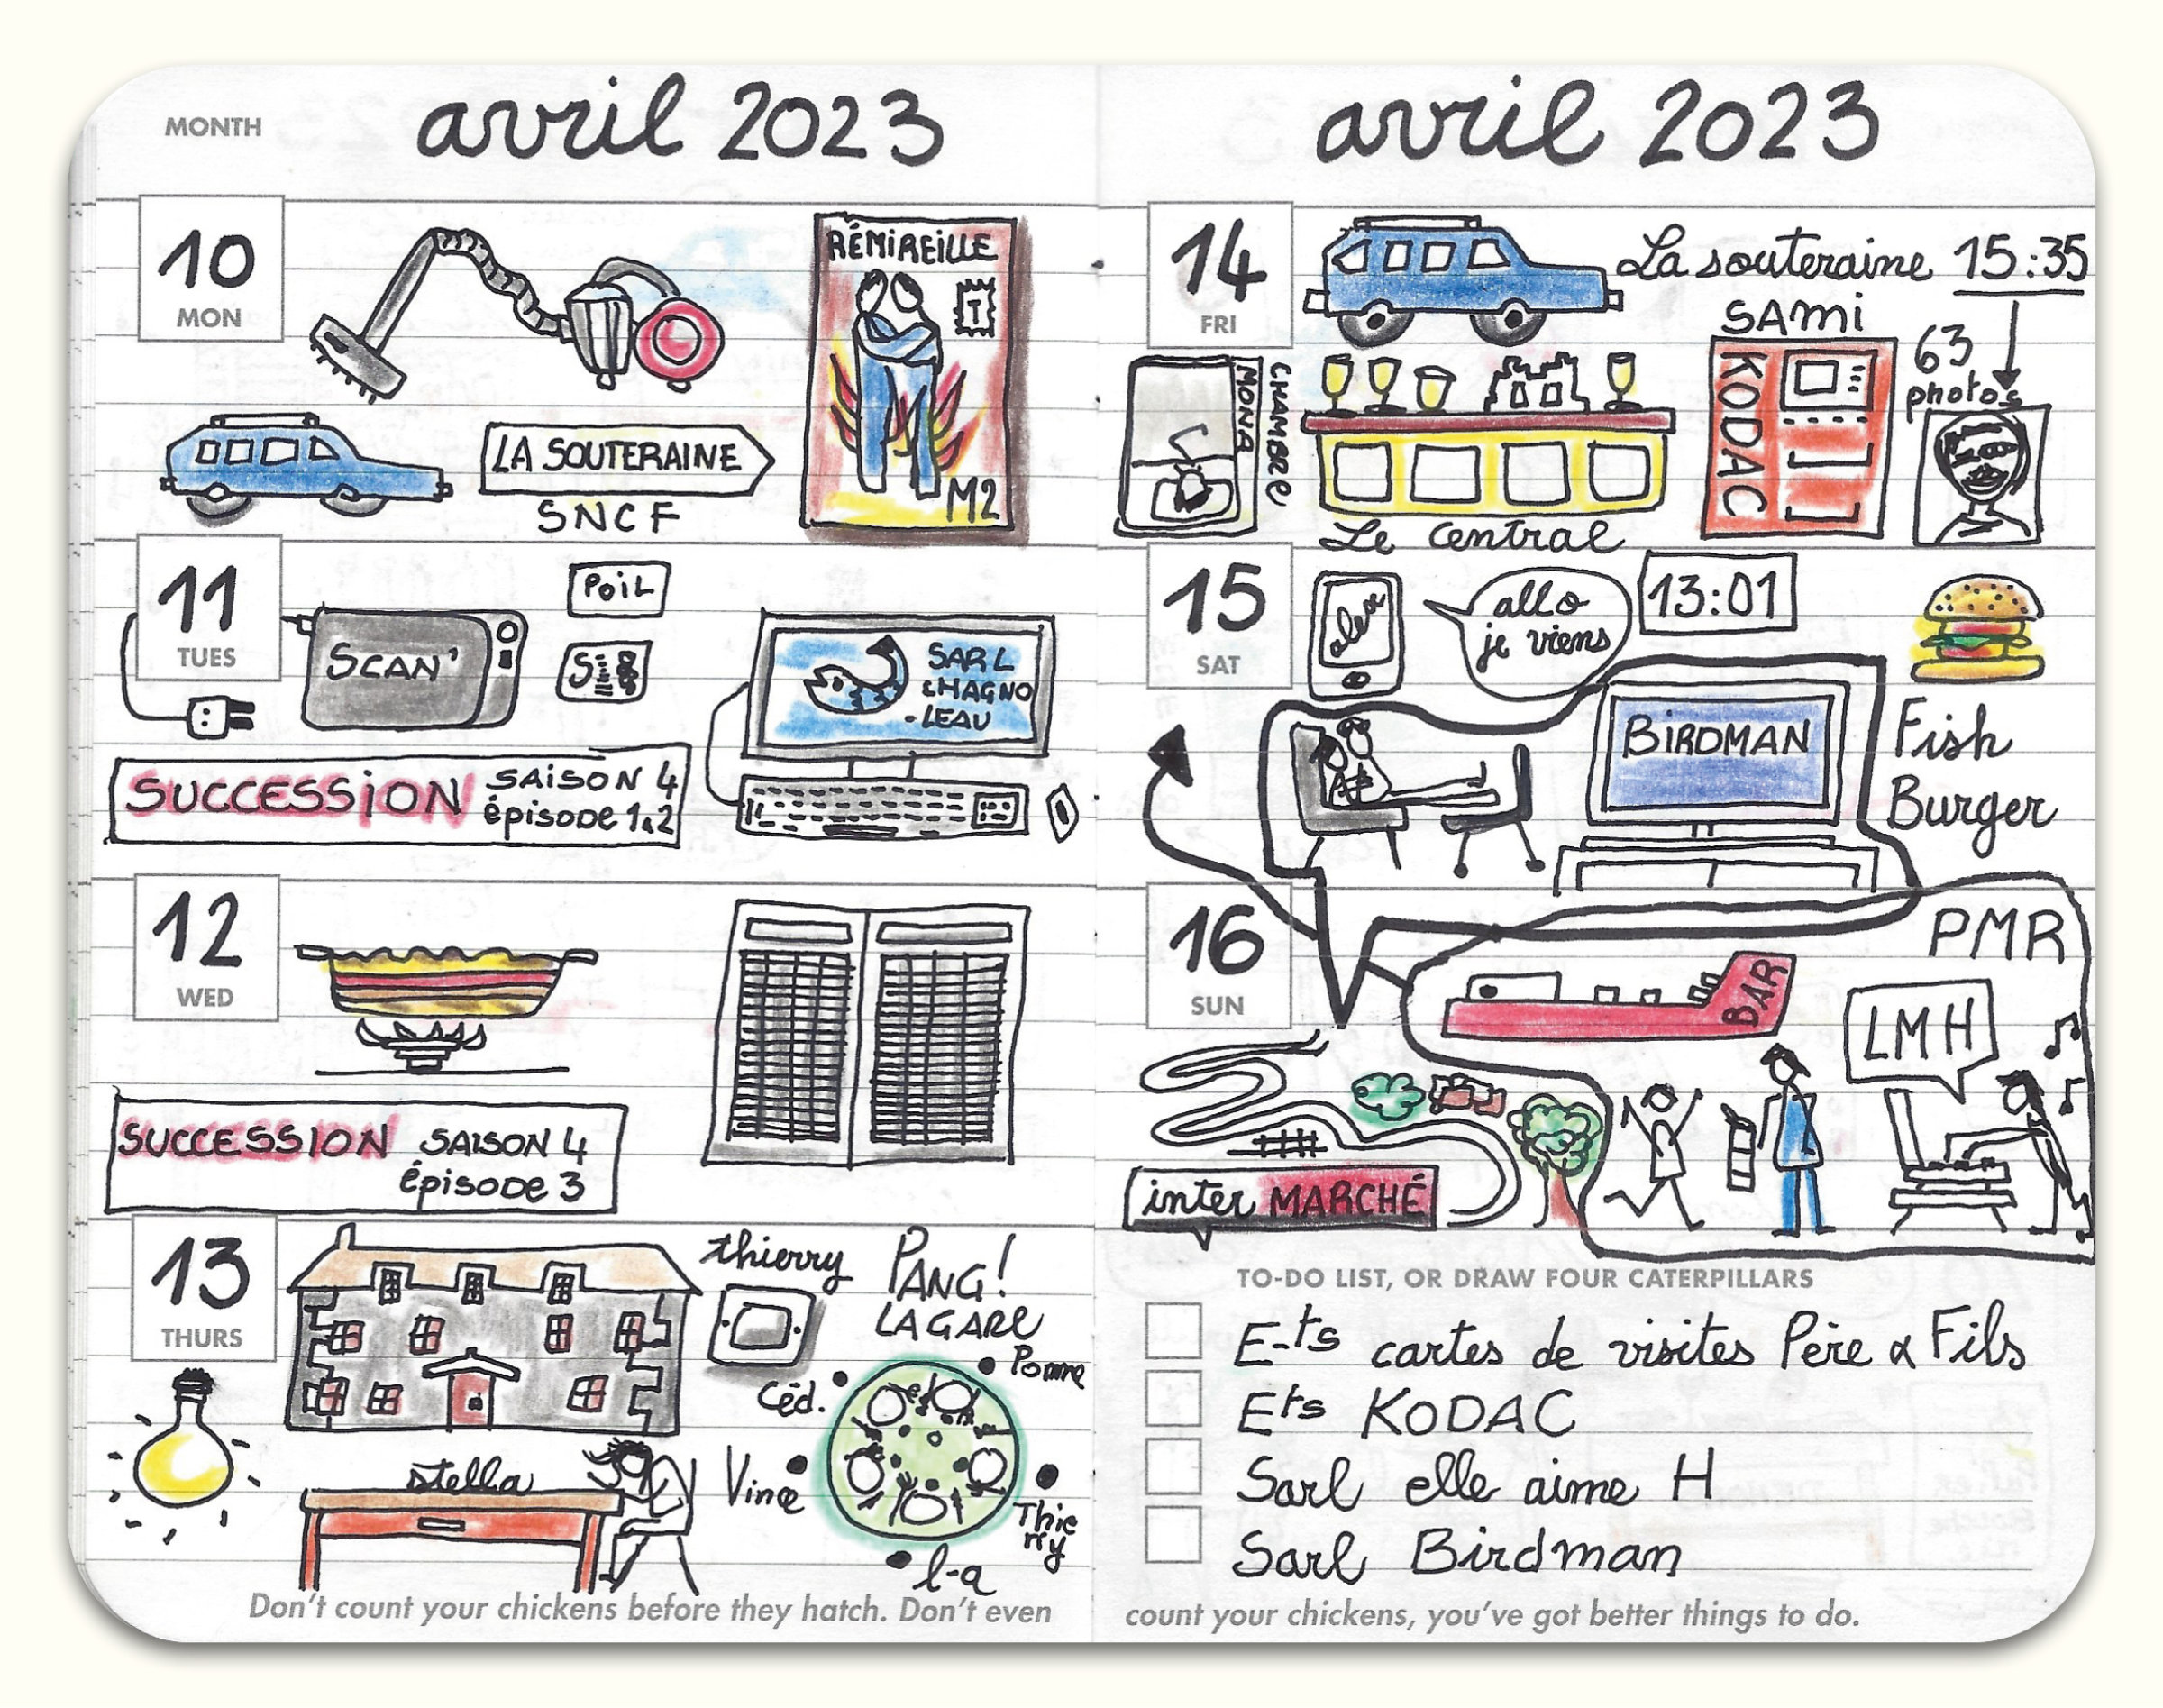 MONTH
avril 2023
10
MON
RÉMIREILLE
T
M2
LA SOUTERAINE
SNCF
11
TUES
SCAN'
POIL
SARL
CHAGNO
-LEAU
SUCCESSION SAISON 4
épisode 1.2
12
WED
SUCCESSION SAISON 4
épisode 3
13
THURS
thierry
PANG!
LAGARE
Pomme
Céd.
Vince
Thie
rry
l-a
stella
Don't count your chickens before they hatch. Don't even
avril 2023
14
FRI
La souteraine 15:35
SAMI
63
photos
KODAC
CHAMBRE
MONA
Le Central
15
SAT
alex
allo
je viens
13:01
BIRDMAN
Fish
Burger
16
SUN
PMR
BAR
LMH
inter MARCHÉ
TO-DO LIST, OR DRAW FOUR CATERPILLARS
E-ts cartes de visites Père & Fils
Ets KODAC
Sarl elle aime H
Sarl Birdman
count your chickens, you've got better things to do.